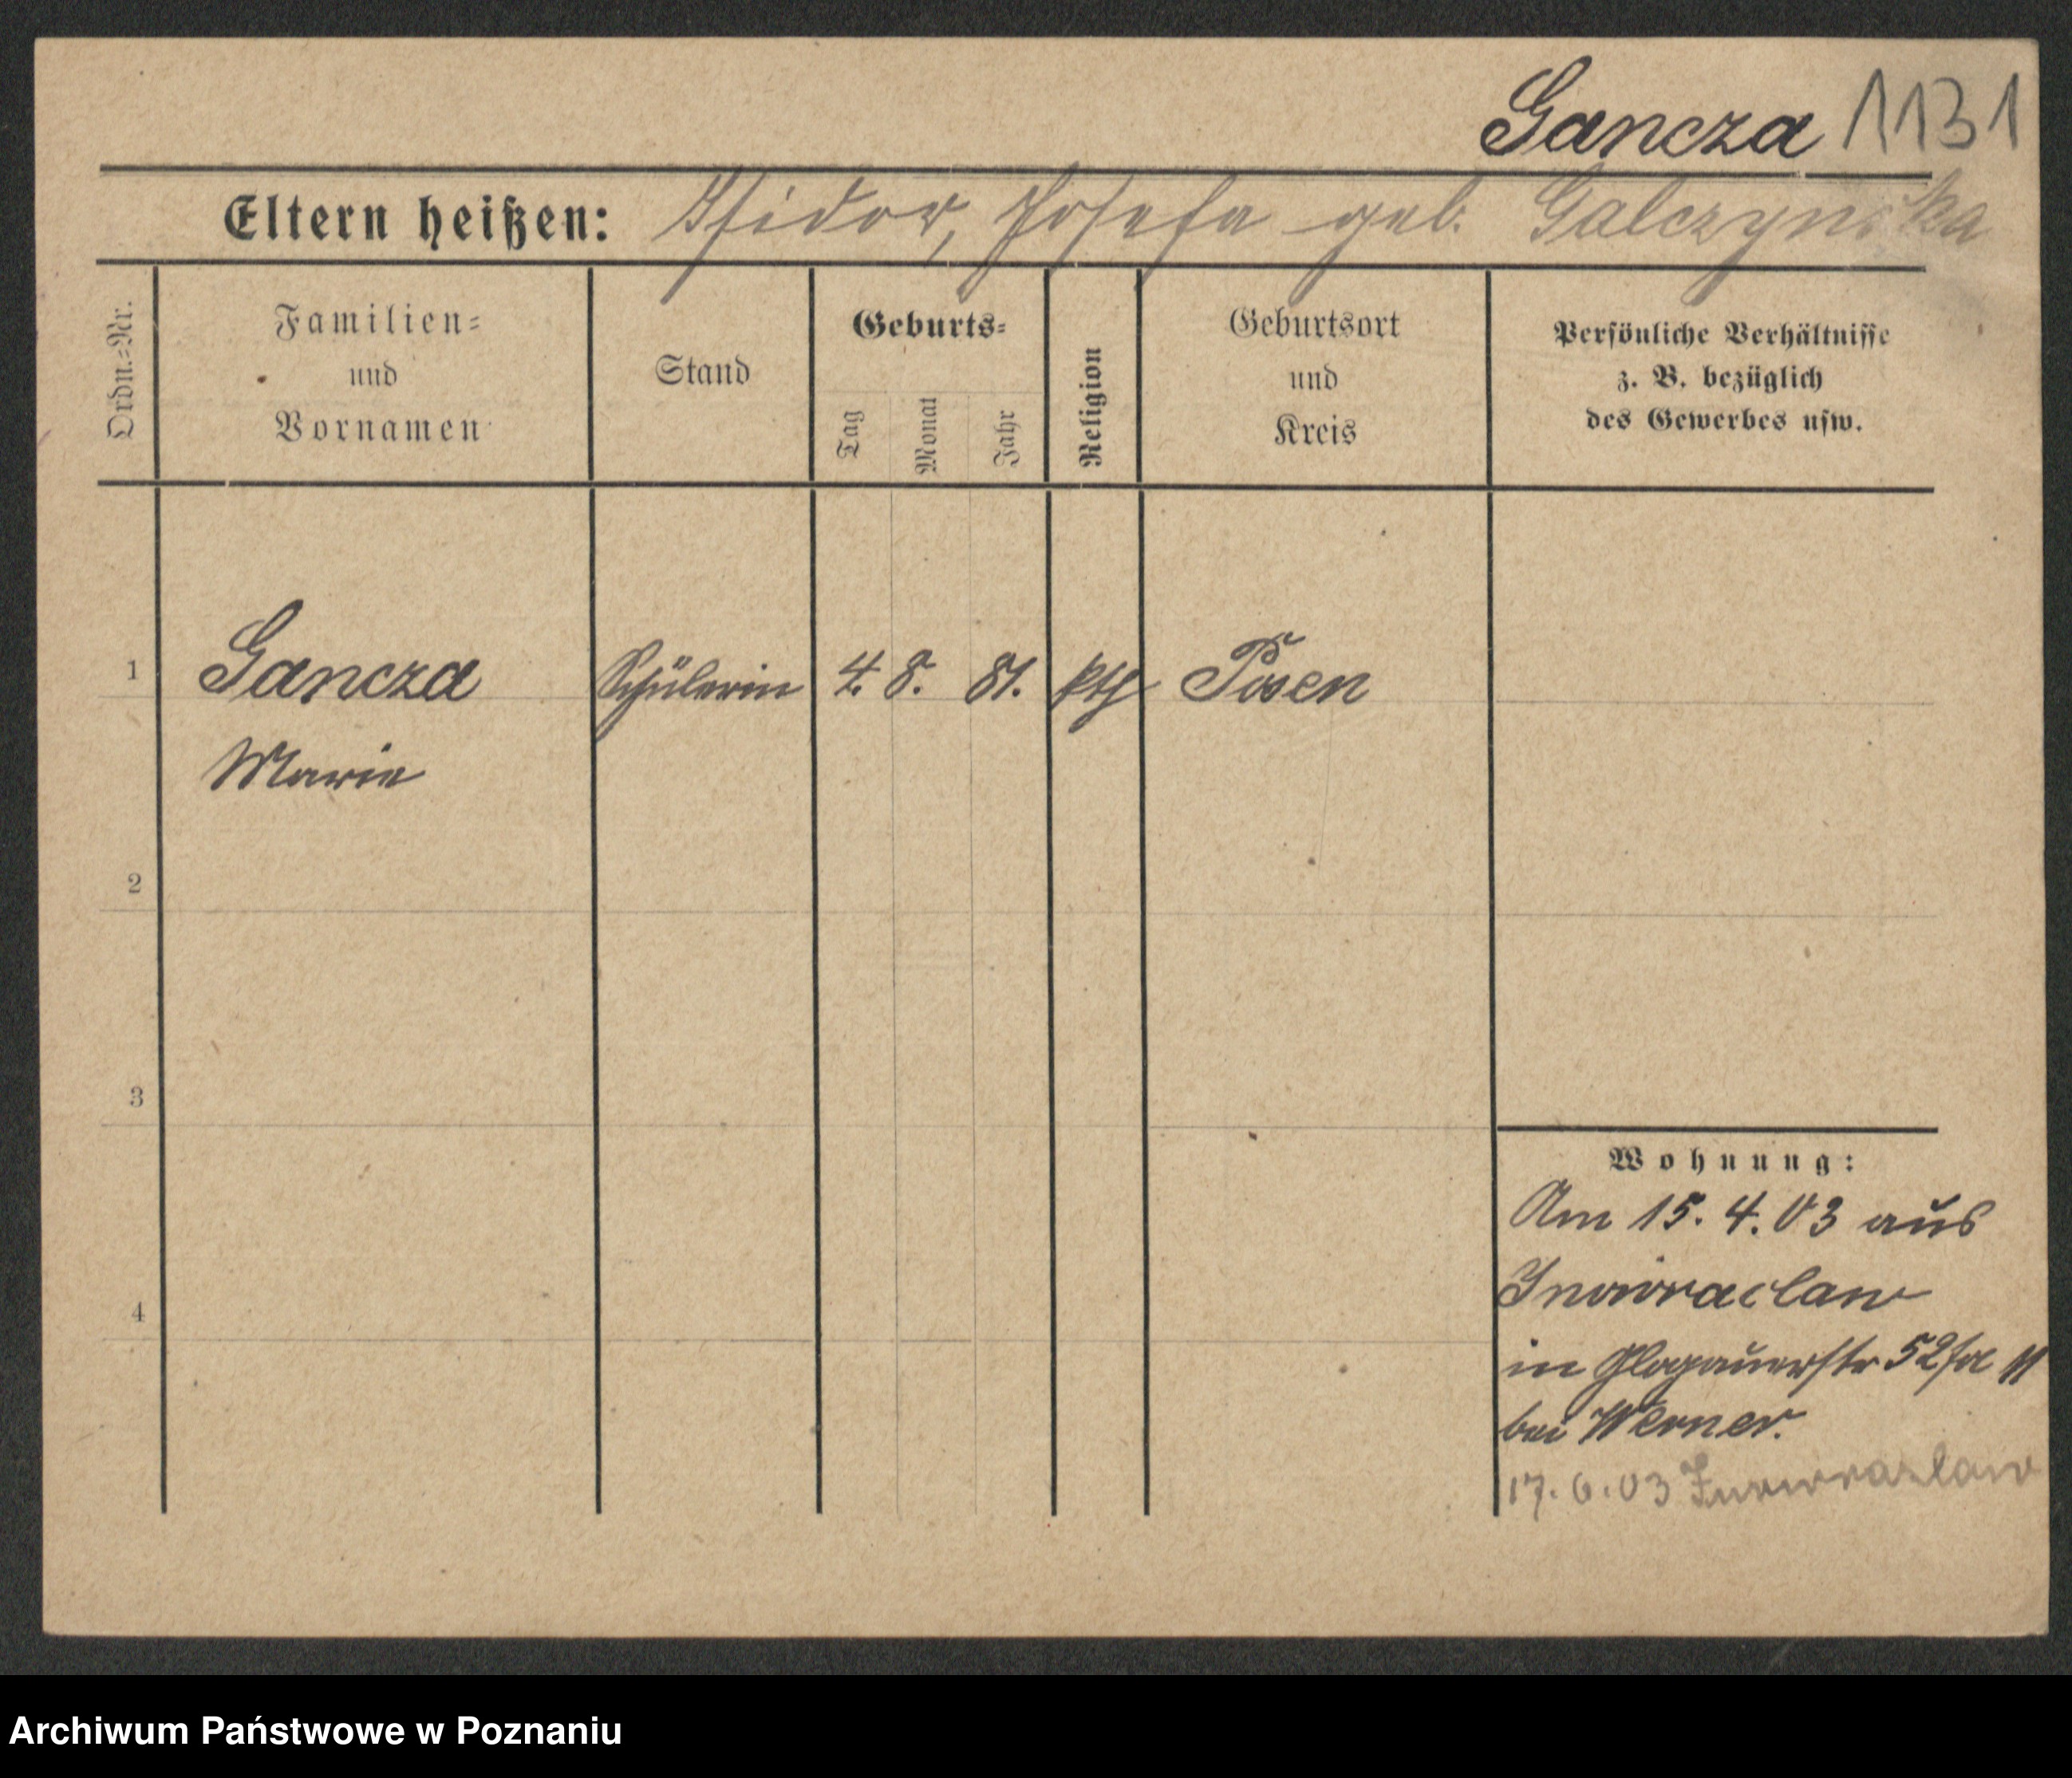 Gancza 1131
Eltern heißen: Isidor, Josefa geb. Galczynska
Ordn.=Nr.
Familien=
und
Vornamen
Stand
Geburts=
Tag
Monat
Jahr
Religion
Geburtsort
und
Kreis
Persönliche Verhältnisse
z. B. bezüglich
des Gewerbes usw.
1 Gancza Schülerin 4. 8. 81. kth Posen
Marie
2
3
4
Wohnung:
Am 15. 4. 03 aus
Inowraclaw
in Glogauerstr 52/
bei Werner.
17. 6. 03 Inowrazlaw
Archiwum Państwowe w Poznaniu